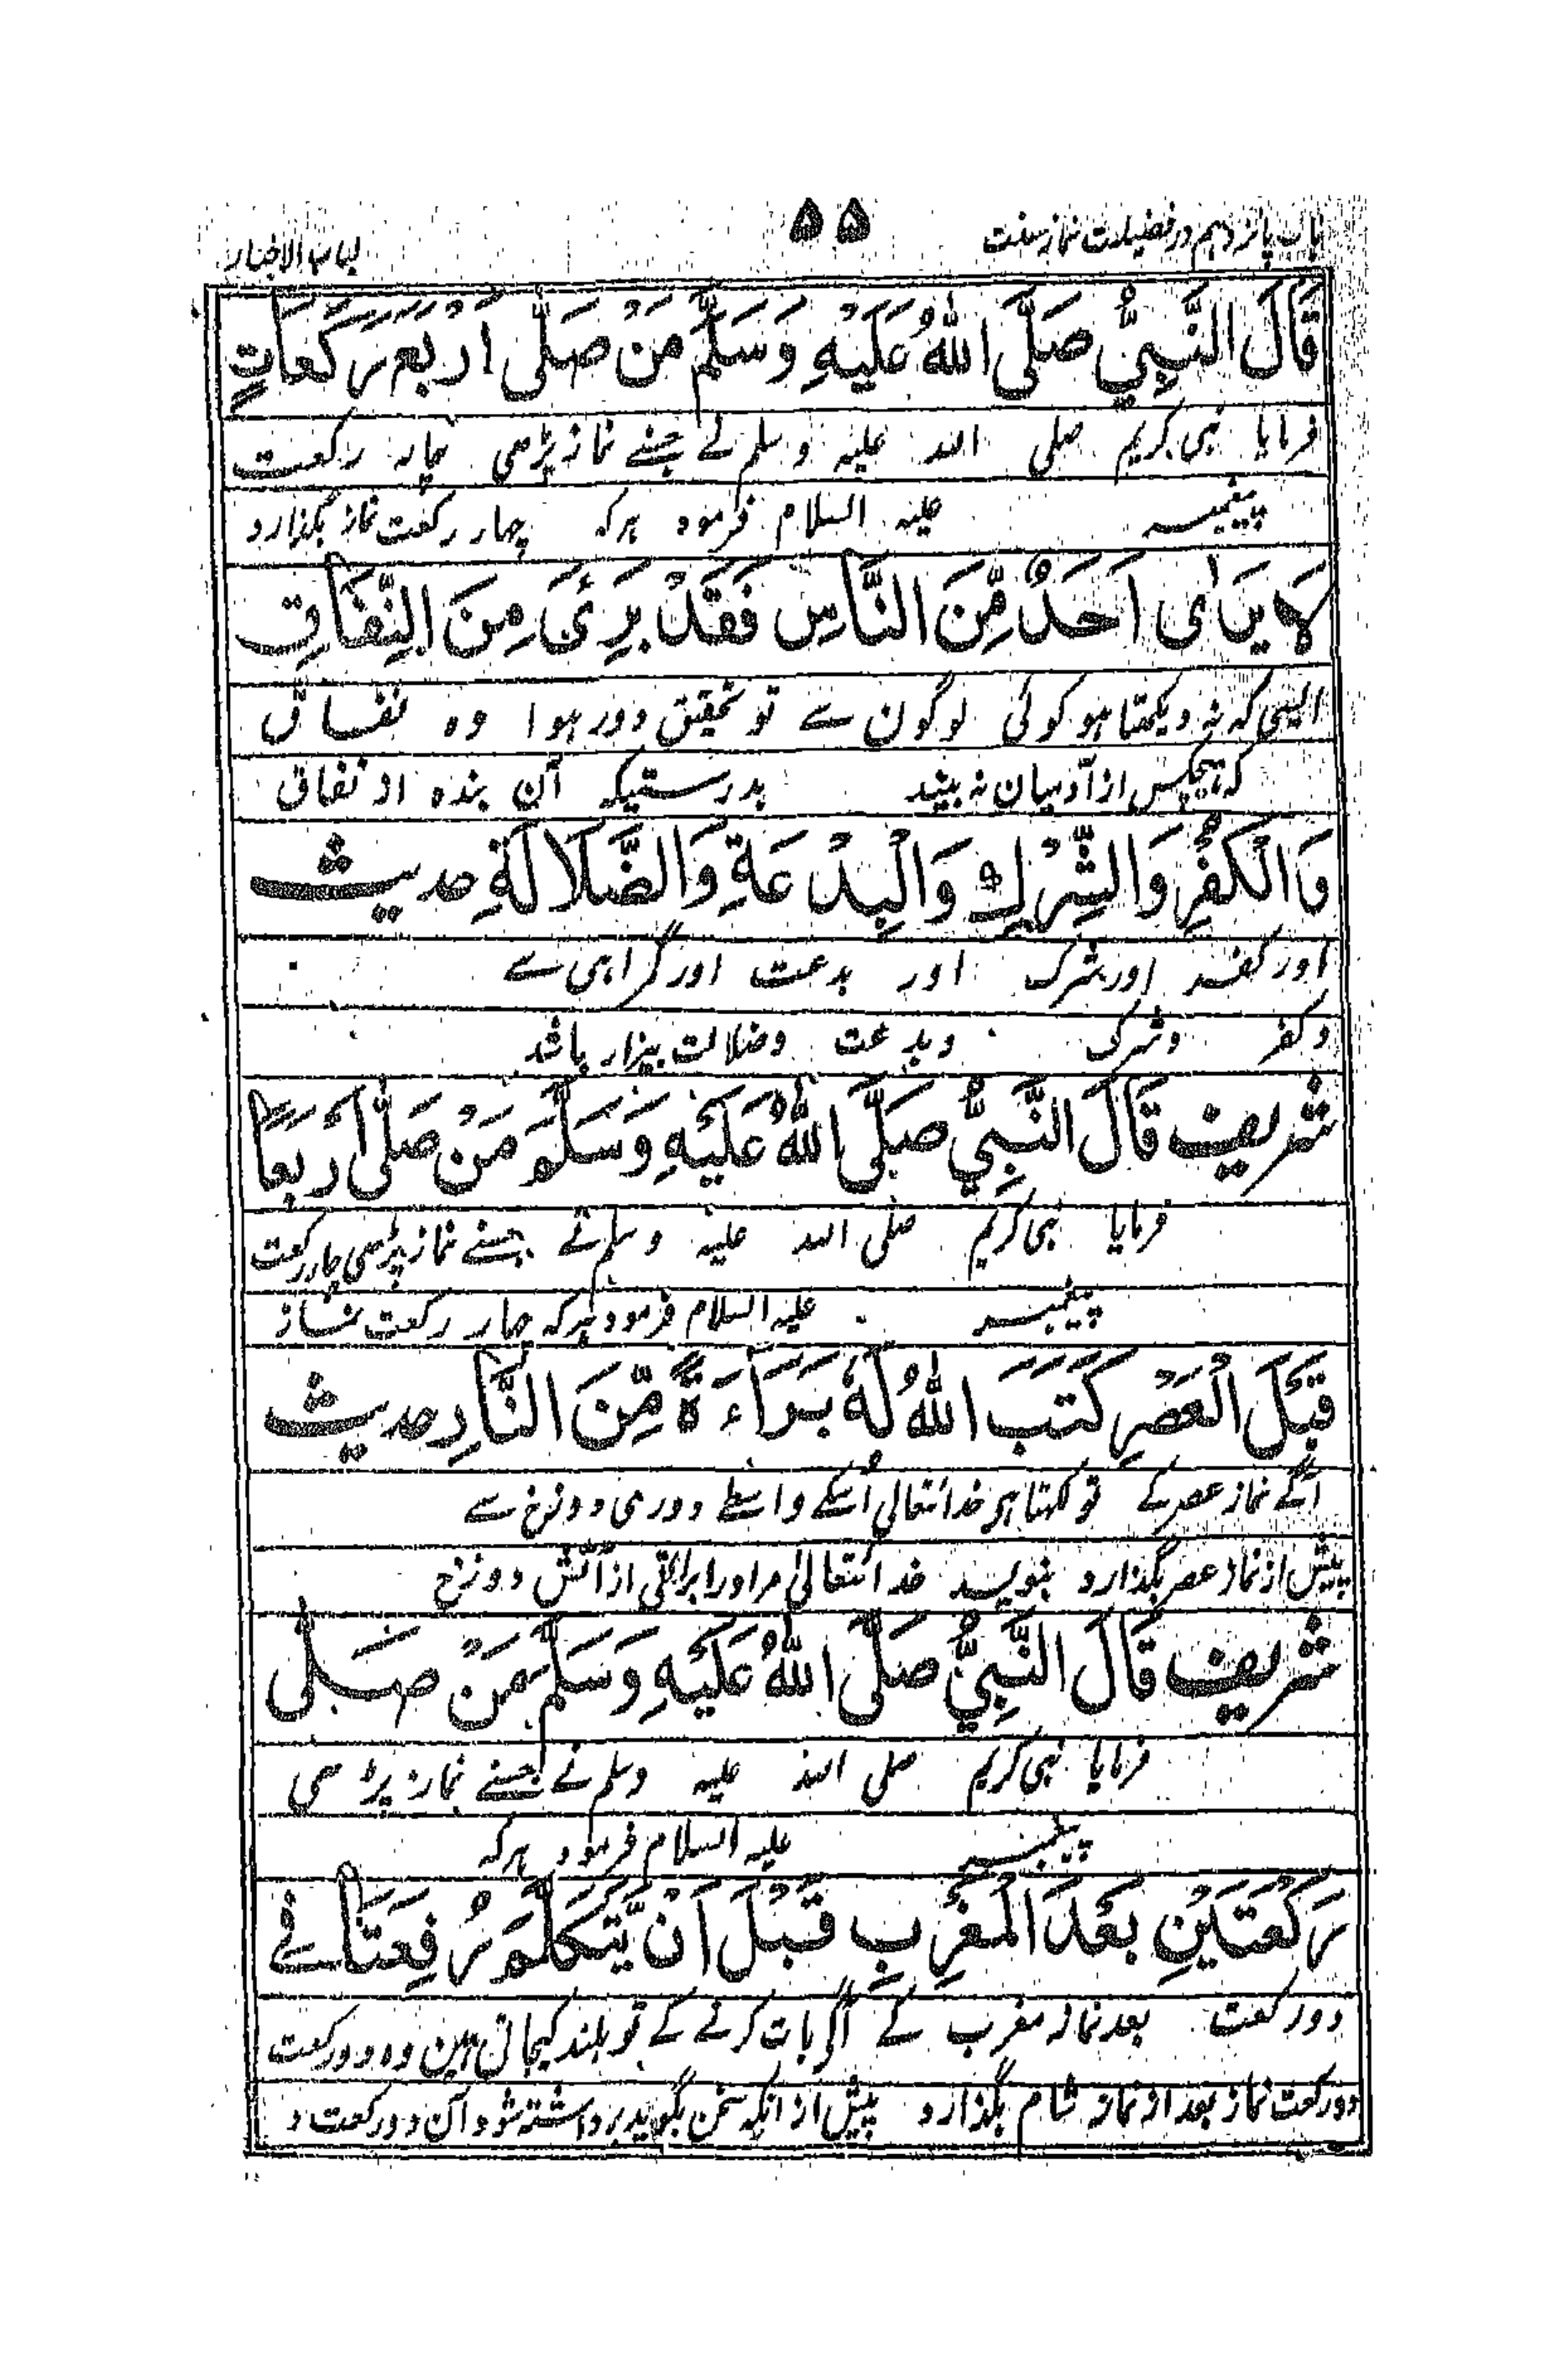 باب پانزدہم در فضیلت نماز سنت
۵۵
لباب الاخبار
قَالَ النَّبِيُّ صَلَّى اللهُ عَلَيْهِ وَسَلَّمَ مَنْ صَلَّى اَرْبَعَ رَكَعَاتٍ
فرمایا نبی کریم صلی اللہ علیہ وسلم نے جسنے نماز پڑھی چار رکعت
پیغمبر علیہ السلام فرمود ہرکہ چہار رکعت نماز بگذارد
لَا يَرَاٰى اَحَدٌ مِّنَ النَّاسِ فَقَدْ بَرِئَ مِنَ النِّفَاقِ
ایسی کہ نہ دیکھتا ہو کوئی لوگون سے تو تحقیق دور ہوا وہ نفاق
کہ ہیچکس از آدمیان نہ بیند بدرستیکہ آن بندہ از نفاق
وَالْكُفْرِ وَالشِّرْكِ وَالْبِدْعَةِ وَالضَّلَالَةِ حدیث
اور کفر اور شرک اور بدعت اور گمراہی سے
وکفر وشرک وبدعت وضلالت بیزار باشد
شریف قَالَ النَّبِيُّ صَلَّى اللهُ عَلَيْهِ وَسَلَّمَ مَنْ صَلَّى اَرْبَعًا
فرمایا نبی کریم صلی اللہ علیہ وسلم نے جسنے نماز پڑھی چار رکعت
پیغمبر علیہ السلام فرمود ہرکہ چہار رکعت نماز
قَبْلَ الْعَصْرِ كَتَبَ اللهُ لَهٗ بَرَآءَةً مِّنَ النَّارِ حدیث
آگے نماز عصر کے تو لکھتا ہو خدائتعالی اُسکے واسطے دوری دوزخ سے
پیش از نماز عصر بگذارد بنویسد خدائتعالیٰ مر او را براتی از آتش دوزخ
شریف قَالَ النَّبِيُّ صَلَّى اللهُ عَلَيْهِ وَسَلَّمَ مَنْ صَلَّى
فرمایا نبی کریم صلی اللہ علیہ وسلم نے جسنے نماز پڑھی
پیغمبر علیہ السلام فرمود ہرکہ
رَكْعَتَيْنِ بَعْدَ الْمَغْرِبِ قَبْلَ اَنْ يَّتَكَلَّمَ رُفِعَتَا فِي
دو رکعت بعد نماز مغرب کے آگے بات کرنے کے تو بلند کیجاتی ہین وہ دو رکعت
دو رکعت نماز بعد از نماز شام بگذارد پیش از انکہ سخن بگوید برداشتہ شود آن دو رکعت د